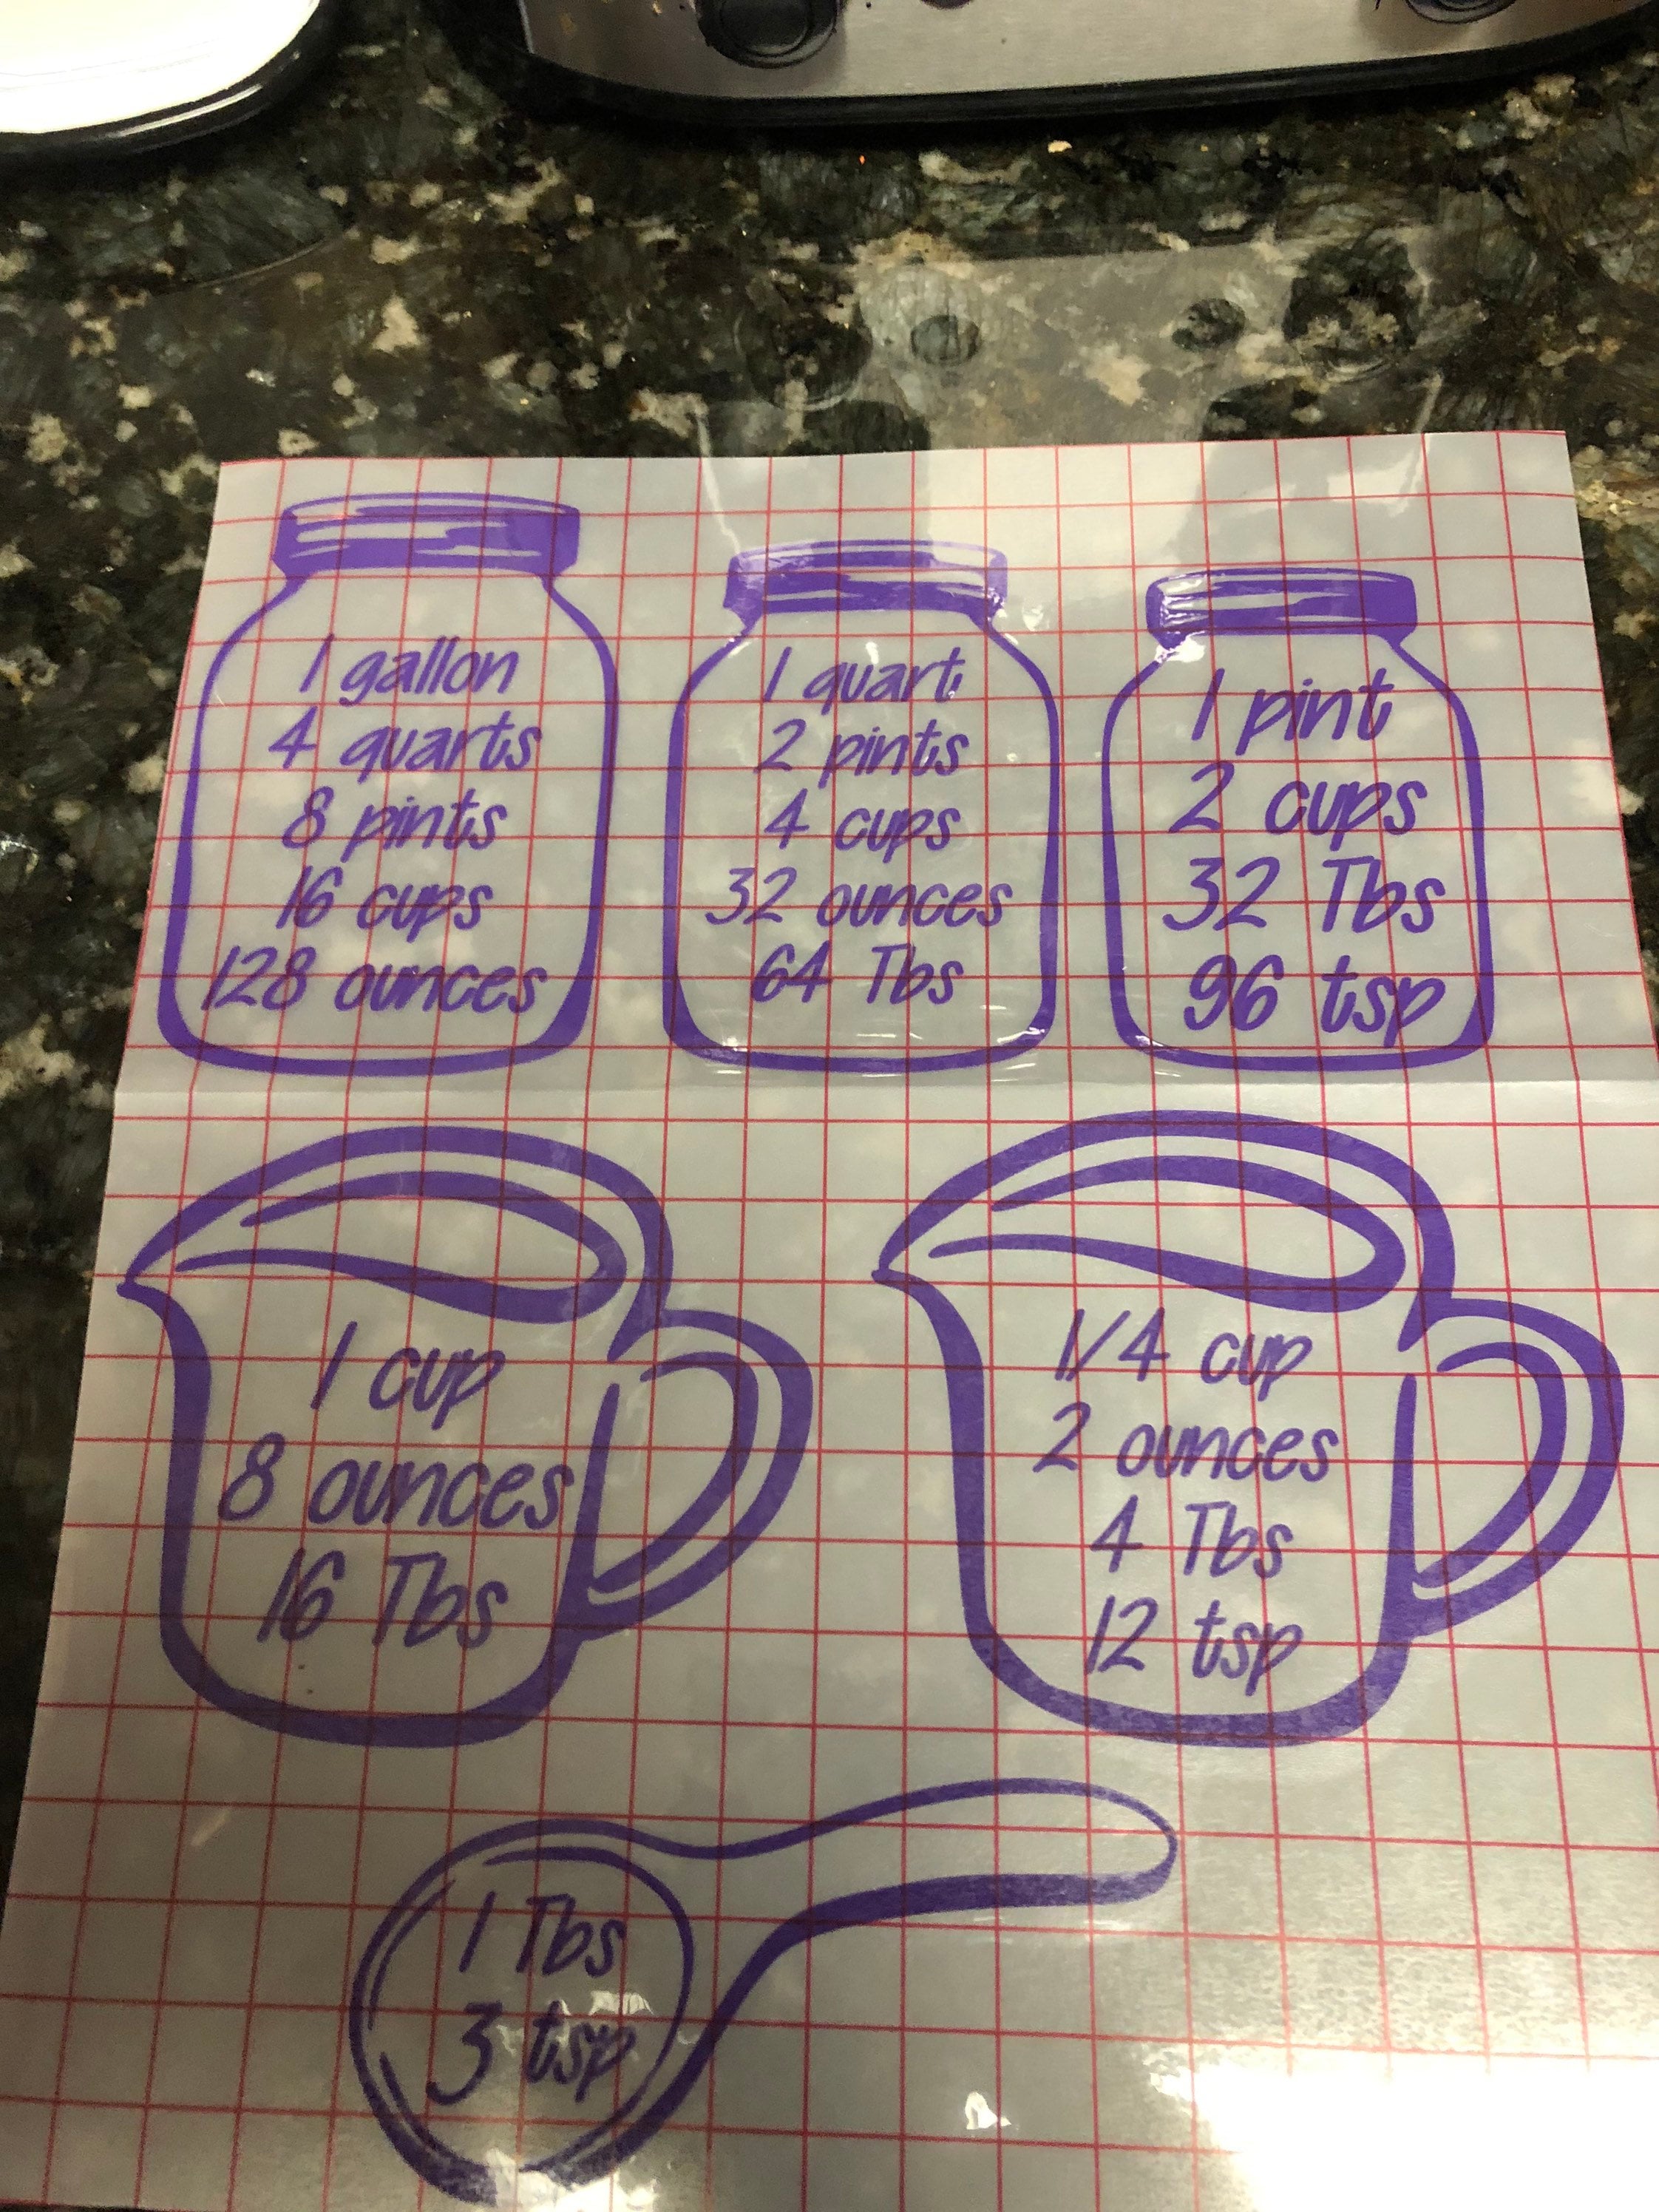 1 gallon
4 quarts
8 pints
16 cups
128 ounces
1 quart
2 pints
4 cups
32 ounces
64 Tbs
1 pint
2 cups
32 Tbs
96 tsp
1 cup
8 ounces
16 Tbs
1/4 cup
2 ounces
4 Tbs
12 tsp
1 Tbs
3 tsp